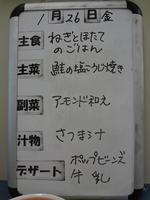 1月26日金
主食 ねぎとほたて
のごはん
主菜 鮭の塩こうじ焼き
副菜 アーモンド和え
汁物 さつま汁
デザート ポップビーンズ
牛乳